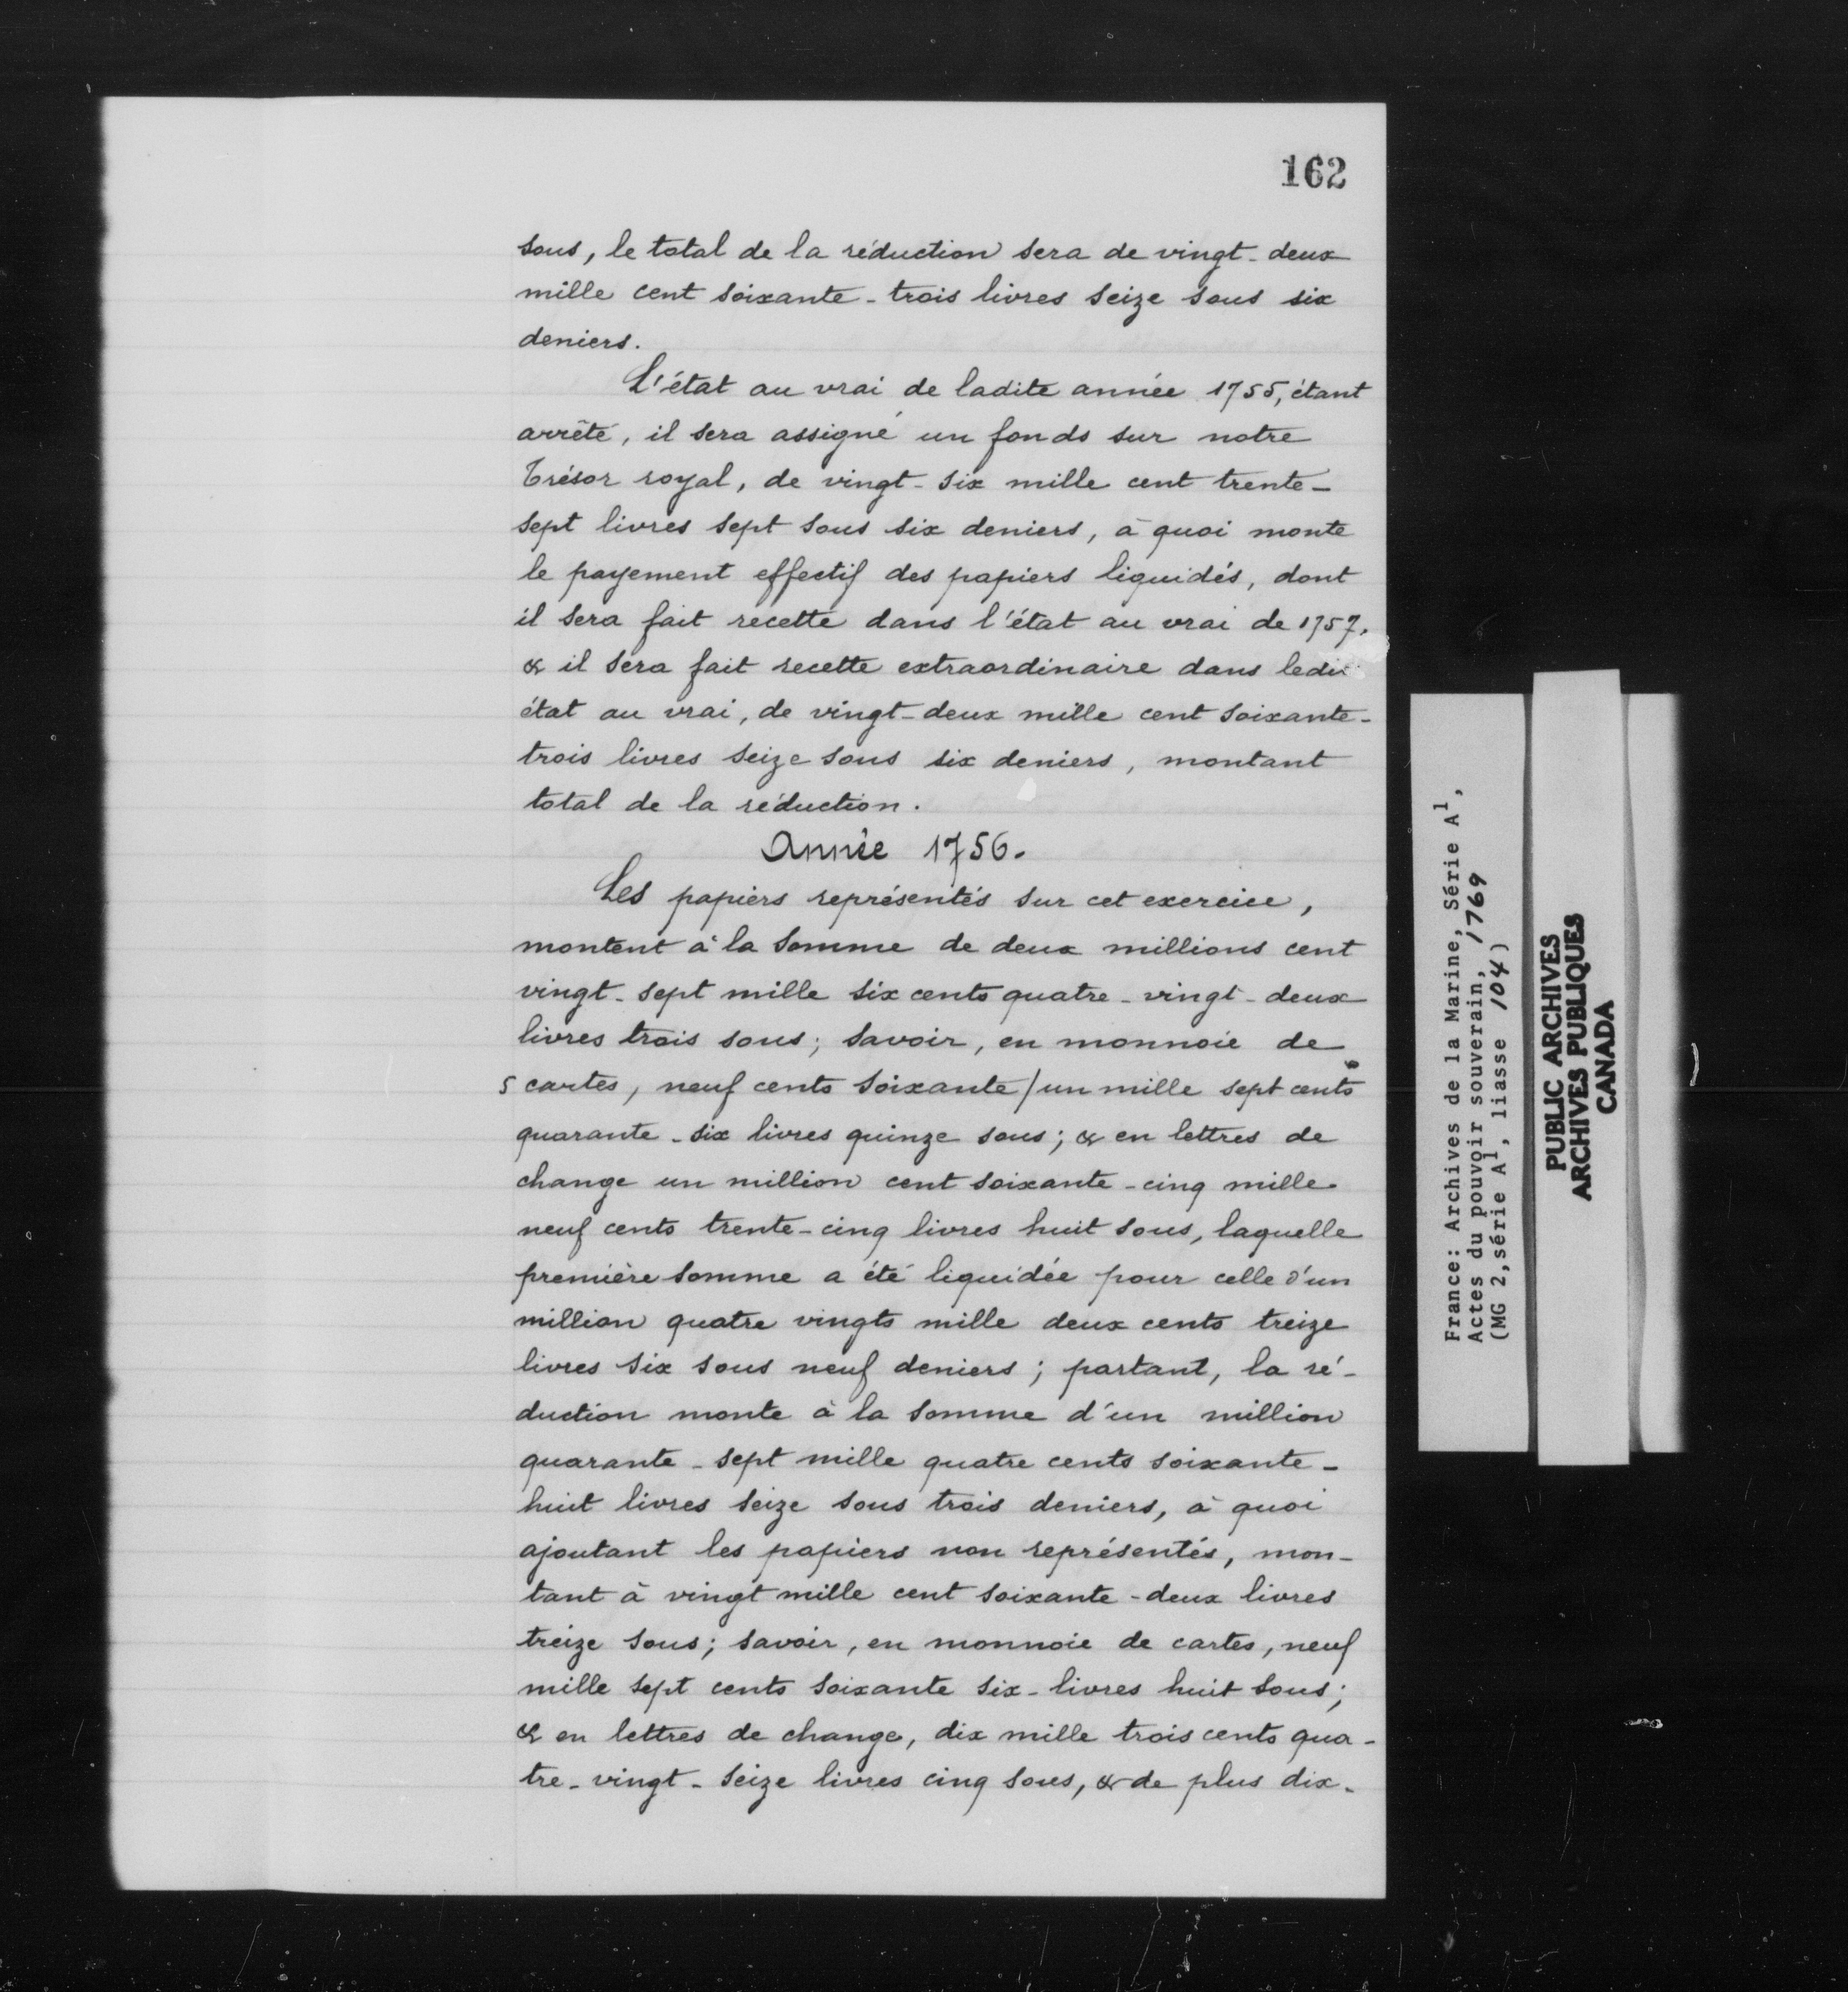 162
sous, le total de la réduction sera de vingt-deux
mille cent soixante-trois livres seize sous six
deniers.
L'état au vrai de ladite année 1755, étant
arrêté, il sera assigné un fonds sur notre
Trésor royal, de vingt-six mille cent trente-
sept livres sept sous six deniers, à quoi monte
le payement effectif des papiers liquidés, dont
il sera fait recette dans l'état au vrai de 1757,
& il sera fait recette extraordinaire dans ledit
état au vrai, de vingt-deux mille cent soixante-
trois livres seize sous six deniers, montant
total de la réduction.
Année 1756.
Les papiers représentés sur cet exercice,
montent à la somme de deux millions cent
vingt-sept mille six cents quatre-vingt-deux
livres trois sous; savoir, en monnoie de
5 cartes, neuf cents soixante/un mille sept cents
quarante-six livres quinze sous; & en lettres de
change un million cent soixante-cinq mille
neuf cents trente-cinq livres huit sous, laquelle
première somme a été liquidée pour celle d'un
million quatre vingts mille deux cents treize
livres six sous neuf deniers; partant, la ré-
duction monte à la somme d'un million
quarante-sept mille quatre cents soixante-
huit livres seize sous trois deniers, à quoi
ajoutant les papiers non représentés, mon-
tant à vingt mille cent soixante-deux livres
treize sous; savoir, en monnoie de cartes, neuf
mille sept cents soixante six-livres huit sous;
& en lettres de change, dix mille trois cents qua-
tre-vingt-seize livres cinq sous, & de plus dix-
France: Archives de la Marine, Série A1,
Actes du pouvoir souverain, 1769
(MG 2, série A1, liasse 104)
PUBLIC ARCHIVES
ARCHIVES PUBLIQUES
CANADA